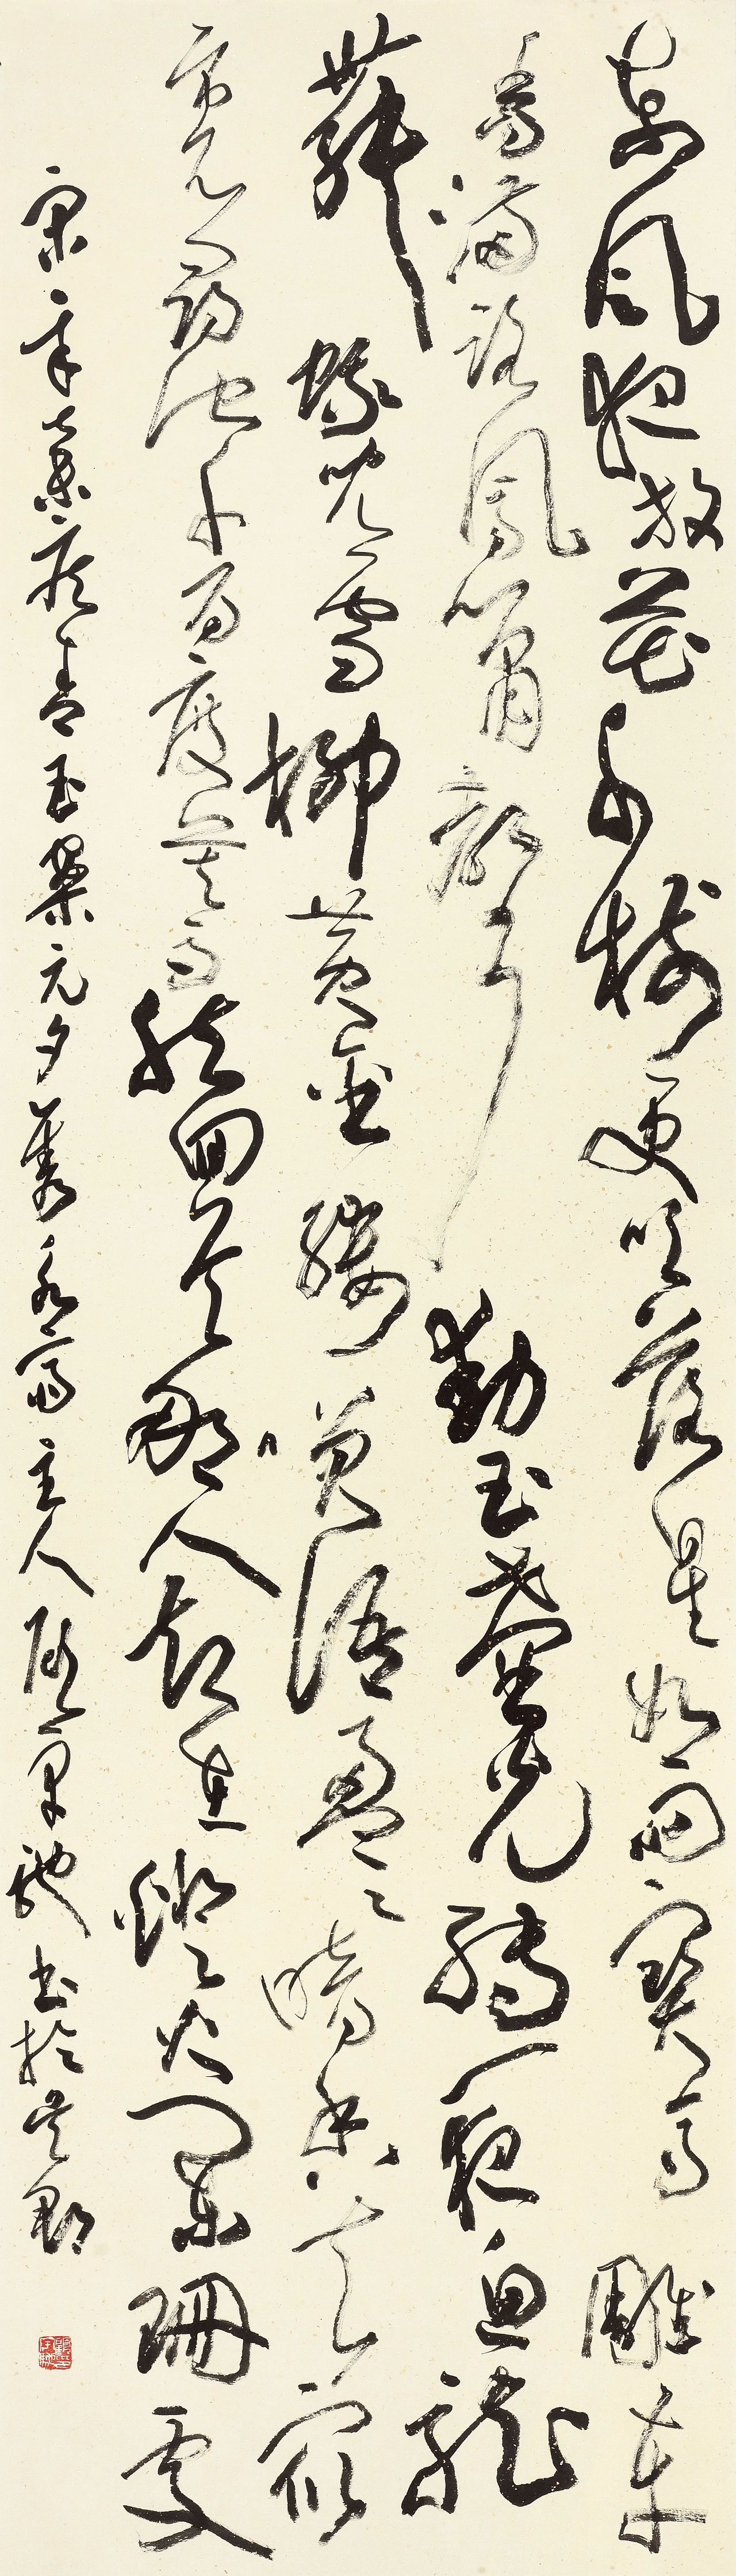 東風夜放花千樹更吹落星如雨寶馬雕車
香滿路鳳簫聲動玉壺光轉一夜魚龍
舞蛾兒雪柳黃金縷笑語盈盈暗香去眾
裏尋他千百度驀然回首那人卻在燈火闌珊處
宋辛棄疾青玉案元夕雋永齋主人書於吳郡